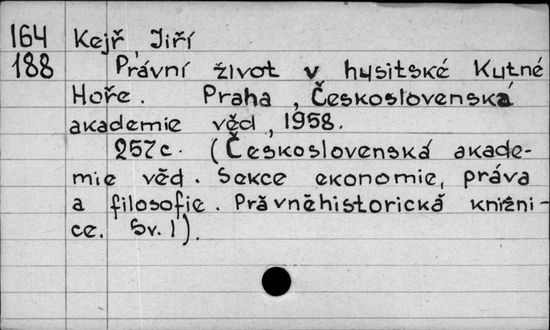 164 Kejř, Jiří
188 Právní život v husitské Kutné
Hoře. Praha, Československá
akademie věd, 1958.
257c. (Československá akade-
mie věd. Sekce ekonomie, práva
a filosofie. Právněhistorická knižni-
ce. Sv. 1).